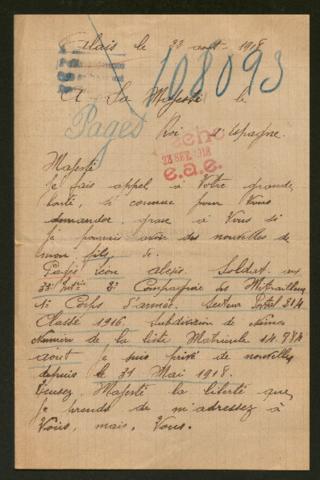 Alais le 23 aout 1918
108093
A Sa Majesté le
Pagès
Roi d'espagne.
23 SEP. 1918
e.a.e.
Majesté
je fais appel à Votre grande
bonté, si connue pour Vous
demander grace à Vous si
je pourrais avoir des nouvelles de
mon fils
Pagès Léon alexis. Soldat au
Compagnie des Mitrailleurs
Corps d'armée. Secteur Postal 114
Classe 1916. Subdivision de Nimes
Numero de la liste Matricule 14.984
dont je suis privé de nouvelles
depuis le 31 Mai 1918.
Excusez, Majesté la liberté que
je prends de m'adressez à
Vous, mais, Vous.